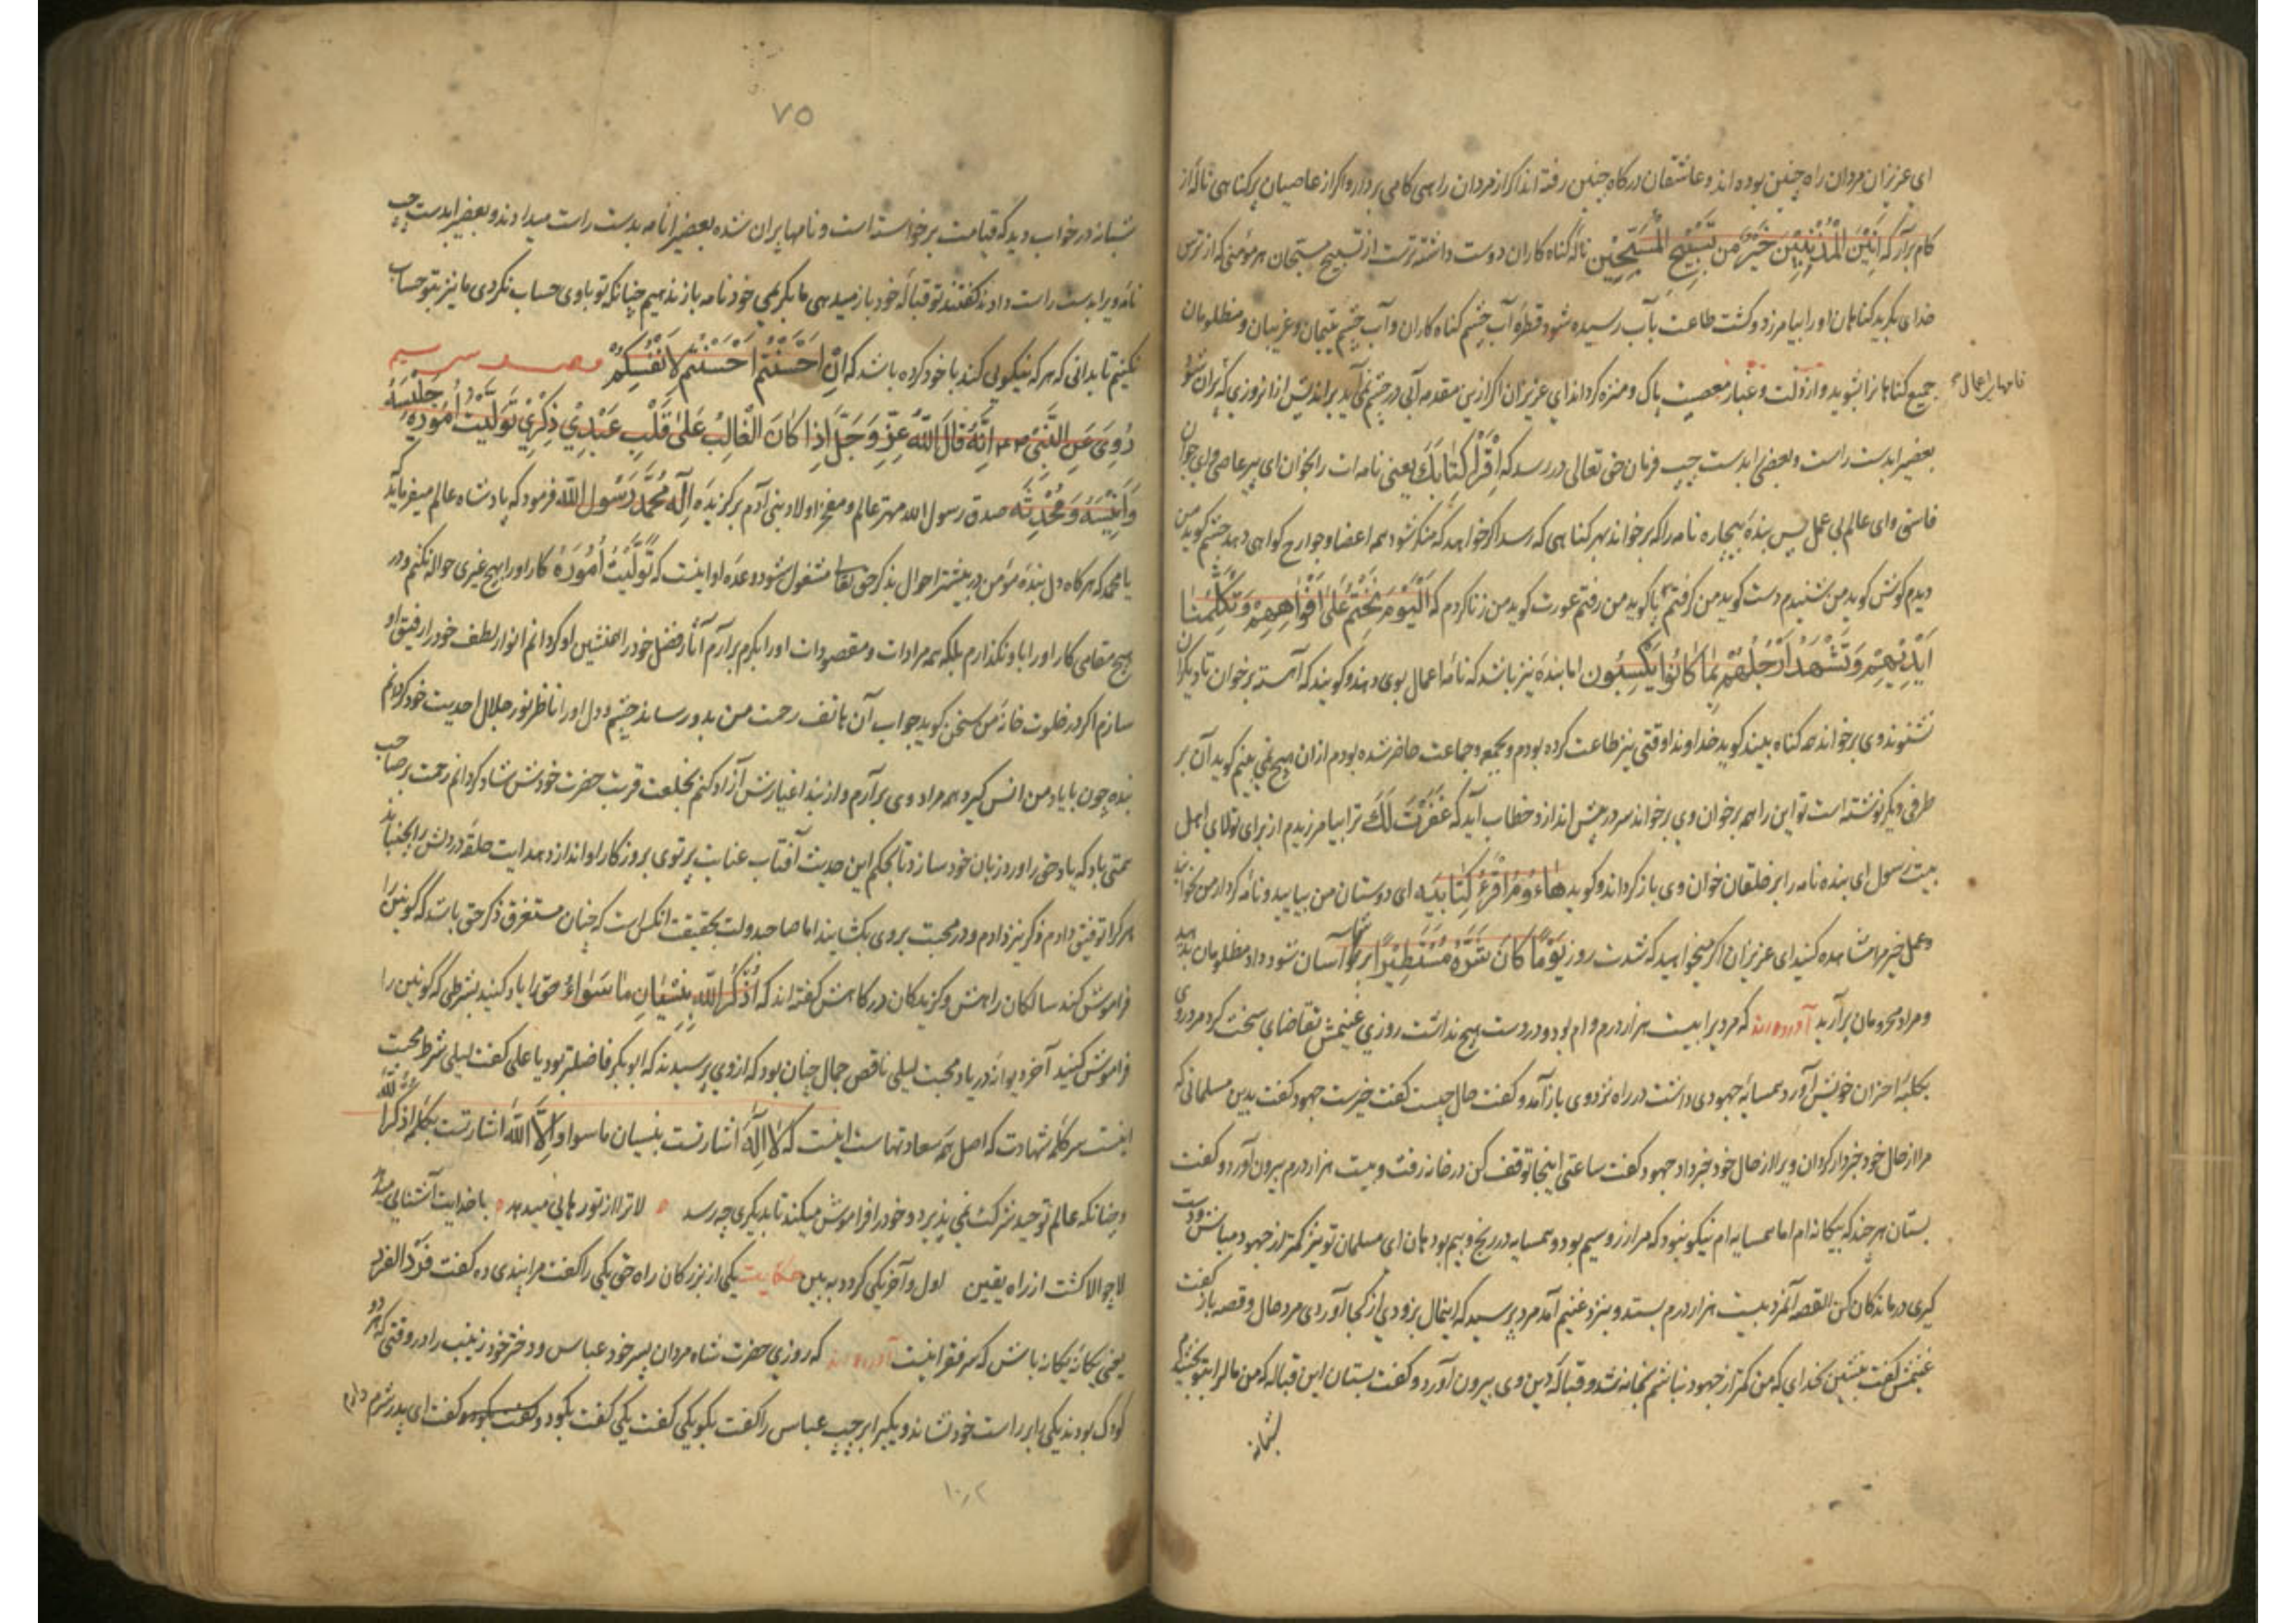 ای عزیزان مردان راه چنین بوده اند و عاشقان درکاه چنین رفته اند اکر از مردان راهی کامی بردار و اکر از عاصیان پرکناهی ناله از
کام برآر که اَنِیْنَ الْمُذْنِبِیْنَ خَیْرٌ مِن تَسْبِیْحِ الْمُسَبِّحِیْن ناله کناه کاران دوست داشته ترست از تسبیح مسبحان هر مؤمنی که از ترس
خدای بکرید کناهان او را بیامرزد و کشت طاعت بآب رسیده شود قطره آب چشم کناه کاران و آب چشم یتیمان و غریبان و مظلومان
جمیع کناهانرا بشوید و از زلت و غبار معصیت پاک و منزه کرداند ای عزیزان اکر ازین مقدمه آبی در چشم نمی آید براندیش از ان روزی که پران شود
نامهای اعمال
بعضیرا بدست راست و بعضی را بدست چپ فرمان حق تعالی در رسد که اِقْرَأْ کِتَابَکَ یعنی نامه ات را بخوان ای پیر عاصی و ای جوان
فاسق و ای عالم بی عمل پس بنده بیچاره نامه را که برخواند بهر کناهی که رسد اکر خواهد که منکر شود همه اعضا و جوارح کواهی دهد چشم کوید من
دیدم کوش کوید من شنیدم دست کوید من کرفتم پا کوید من رفتم عورت کوید من زنا کردم که اَلْیَوْمَ نَخْتِمُ عَلٰی اَفْوَاهِهِمْ وَتُکَلِّمُنَا
اَیْدِیْهِمْ وَتَشْهَدُ اَرْجُلُهُمْ بِمَا کَانُوا یَکْسِبُون اما بنده نیز باشد که نامه اعمال بوی دهند و کویند که آهسته برخوان تا دیکران
نشنوند وی برخواند همه کناه بیند کوید خداوندا وقتی نیز طاعت کرده بودم و بجمعه و جماعت حاضر شده بودم ازان هیچ نمی بینم کوید آن بر
طرفی دیکر نوشته است تو این را همه برخوان وی برخواند سر در پیش اندازد خطاب آید که غَفَرْتُ لَکَ ترا بیامرزیدم از برای تولای اهل
بیت رسول ای بنده نامه را بر خلقان خوان وی باز کرداند و کوید هَاؤُمُ اقْرَؤُا کِتَابِیَه ای دوستان من بیایید و نامه کردار من بخوانید
و عمل خیر مرا مشاهده کنید ای عزیزان اکر میخواهید که شدت روز یَوْمًا کَانَ شَرُّهُ مُسْتَطِیْرًا بر شما آسان شود داد مظلومان بدهید
و مراد محرومان برآرید آورده اند که مردیرا بیست هزار درم وام بود و در دست هیچ نداشت روزی غریمش تقاضای سخت کرد مرد روی
بکلبه احزان خویش آورد همسایه جهودی داشت در راه نزد وی باز آمد و کفت حال چیست کفت خیرست جهود کفت بدین مسلمانی که
مرا از حال خود خبردار کردان ویرا از حال خود خبر داد جهود کفت ساعتی اینجا توقف کن در خانه رفت و بیست هزار درم بیرون آورد و کفت
بستان هر چند که بیکانه ام اما همسایه ام نیکو نبود که مرا زر و سیم بود و همسایه در رنج و بیم بود هان ای مسلمان تو نیز کمتر از جهود مباش و دست
کیری درماندکان کن القصه آنمرد بیست هزار درم بستد و بنزد غریم آمد مرد پرسید که این مال بزودی از کجا آوردی مرد حال و قصه باز کفت
غریمش کفت بنشین بخدای که من کمتر از جهود نباشم بخانه شد و قباله دین وی بیرون آورد و کفت بستان این قباله که من مال را بتو بخشیدم
شبانه
۷۵
شبانه در خواب دید که قیامت برخواسته است و نامها پران شده بعضیرا نامه بدست راست میدادند و بعضیرا بدست چپ
نامه ویرا بدست راست دادند کفتند تو قباله خود باز میدهی ما بکریمی خود نامه باز ندهیم چنانکه تو باوی حساب نکردی ما نیز بتو حساب
نکنیم تا بدانی که هر که نیکویی کند با خود کرده باشد که اِنْ اَحْسَنْتُمْ اَحْسَنْتُمْ لِاَنْفُسِکُمْ
رُوِیَ عَنِ النَّبِیِّ اِنَّهُ قَالَ اللّٰهُ عَزَّ وَجَلَّ اِذَا کَانَ الْغَالِبُ عَلٰی قَلْبِ عَبْدِیْ ذِکْرِیْ تَوَلَّیْتُ اُمُوْرَهُ جَلِیْسَهُ
وَاَنِیْسَهُ وَمُحَدِّثَهُ صدق رسول الله مهتر عالم و مفخر اولاد بنی آدم برکزیده اِلٰه مُحَمَّدٌ رَسُولُ اللّٰه فرمود که پادشاه عالم میفرماید که
یا محمد که هرکاه دل بنده مؤمن در بیشتر احوال بذکر حق تعالی مشغول شود وعده او اینست که تَوَلَّیْتُ اُمُوْرَهُ کار او را بهیچ غیری حواله نکنم و در
هیچ مقامی کار او را باو نکذارم بلکه همه مرادات و مقصودات او را بکرم برآرم آثار فضل خود را همنشین او کردانم انوار لطف خود را رفیق او
سازم اکر در خلوت خانه من سخن کوید جواب آن هاتف رحمت من بدو رساند چشم و دل او را ناظر نور جلال احدیت خود کردانم
بنده چون با یاد من انس کیرد همه مراد وی برآرم و از بند اغیارش آزاد کنم بخلعت قربت حضرت خودش شاد کردانم رحمت بر صاحب
همتی باد که یاد حق را ورد زبان خود سازد تا بحکم این حدیث آفتاب عنایت پرتوی بروزکار او اندازد هدایت حلقه در دلش را بجنباند
هرکرا توفیق دادم ذکر نیز دادم و در محبت بروی بکشایند اما صاحب دولت بحقیقت انکس است که چنان مستغرق ذکر حق باشد که کونین را
فراموش کند سالکان راهش و کزیدکان درکاهش کفته اند که اُذْکُرُ اللّٰهَ بِنِسْیَانِ مَا سِوَاهُ حق را یاد کنید بشرطی که کونین را
فراموش کنید آخر دیوانه در یاد محبت لیلی ناقص جمال چنان بود که ازوی پرسیدند که ابوبکر فاضلتر بود یا علی کفت لیلی شرط محبت
اینست سر کلمه شهادت که اصل همه سعادتهاست اینست که لَا اِلٰهَ اشارتست بنسیان ماسوا و اِلَّا اللّٰهُ اشارتست بکلمه اُذْکُرُ اللّٰه
و چنانکه عالم توحید شرکت نمی پذیرد و خود را فراموش میکند تا بدیکری چه رسد لا ترا از تو رهایی میدهد با خدایت آشنایی میدهد
لا چو الا کشت از راه یقین اول و آخر یکی کردد ببین حکایت یکی از بزرکان راه حق یکی را کفت مرا پندی ده کفت فَرْدٌ الفرد
یعنی یکانه یکانه باش که سر فقر اینست آورده اند که روزی حضرت شاه مردان پسر خود عباس و دختر خود زینب را در وقتی که هر دو
کودک بودند یکی را بر راست خود نشاند و یکیرا بر چپ عباس را کفت بکو یکی کفت یکی کفت بکو دو کفت ای پدر شرم دارم
۱۰۲